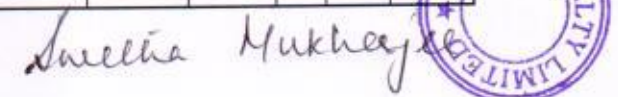 Swetha Mukherjee
LTY LIMITED